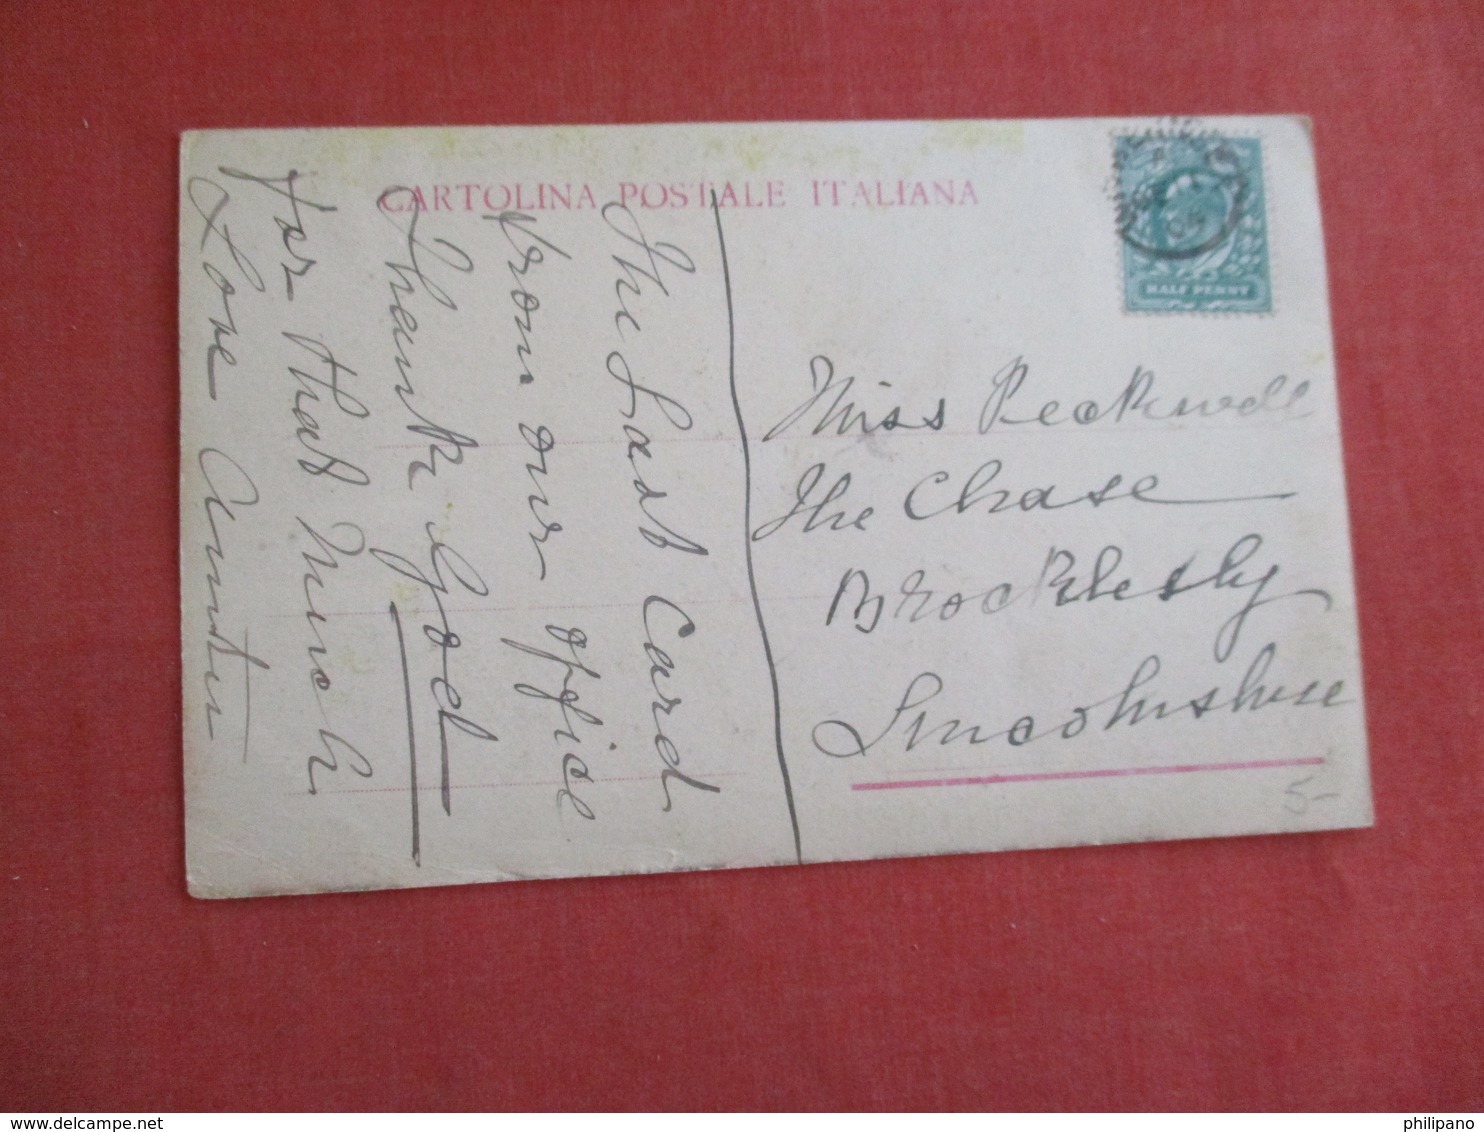 CARTOLINA POSTALE ITALIANA
HALF PENNY
The Last Card
From our office
Thank God
For that much
Love
Miss Peckwell
The Chase
Brocklesby
Lincolnshire
5-
delcampe.net
philipano